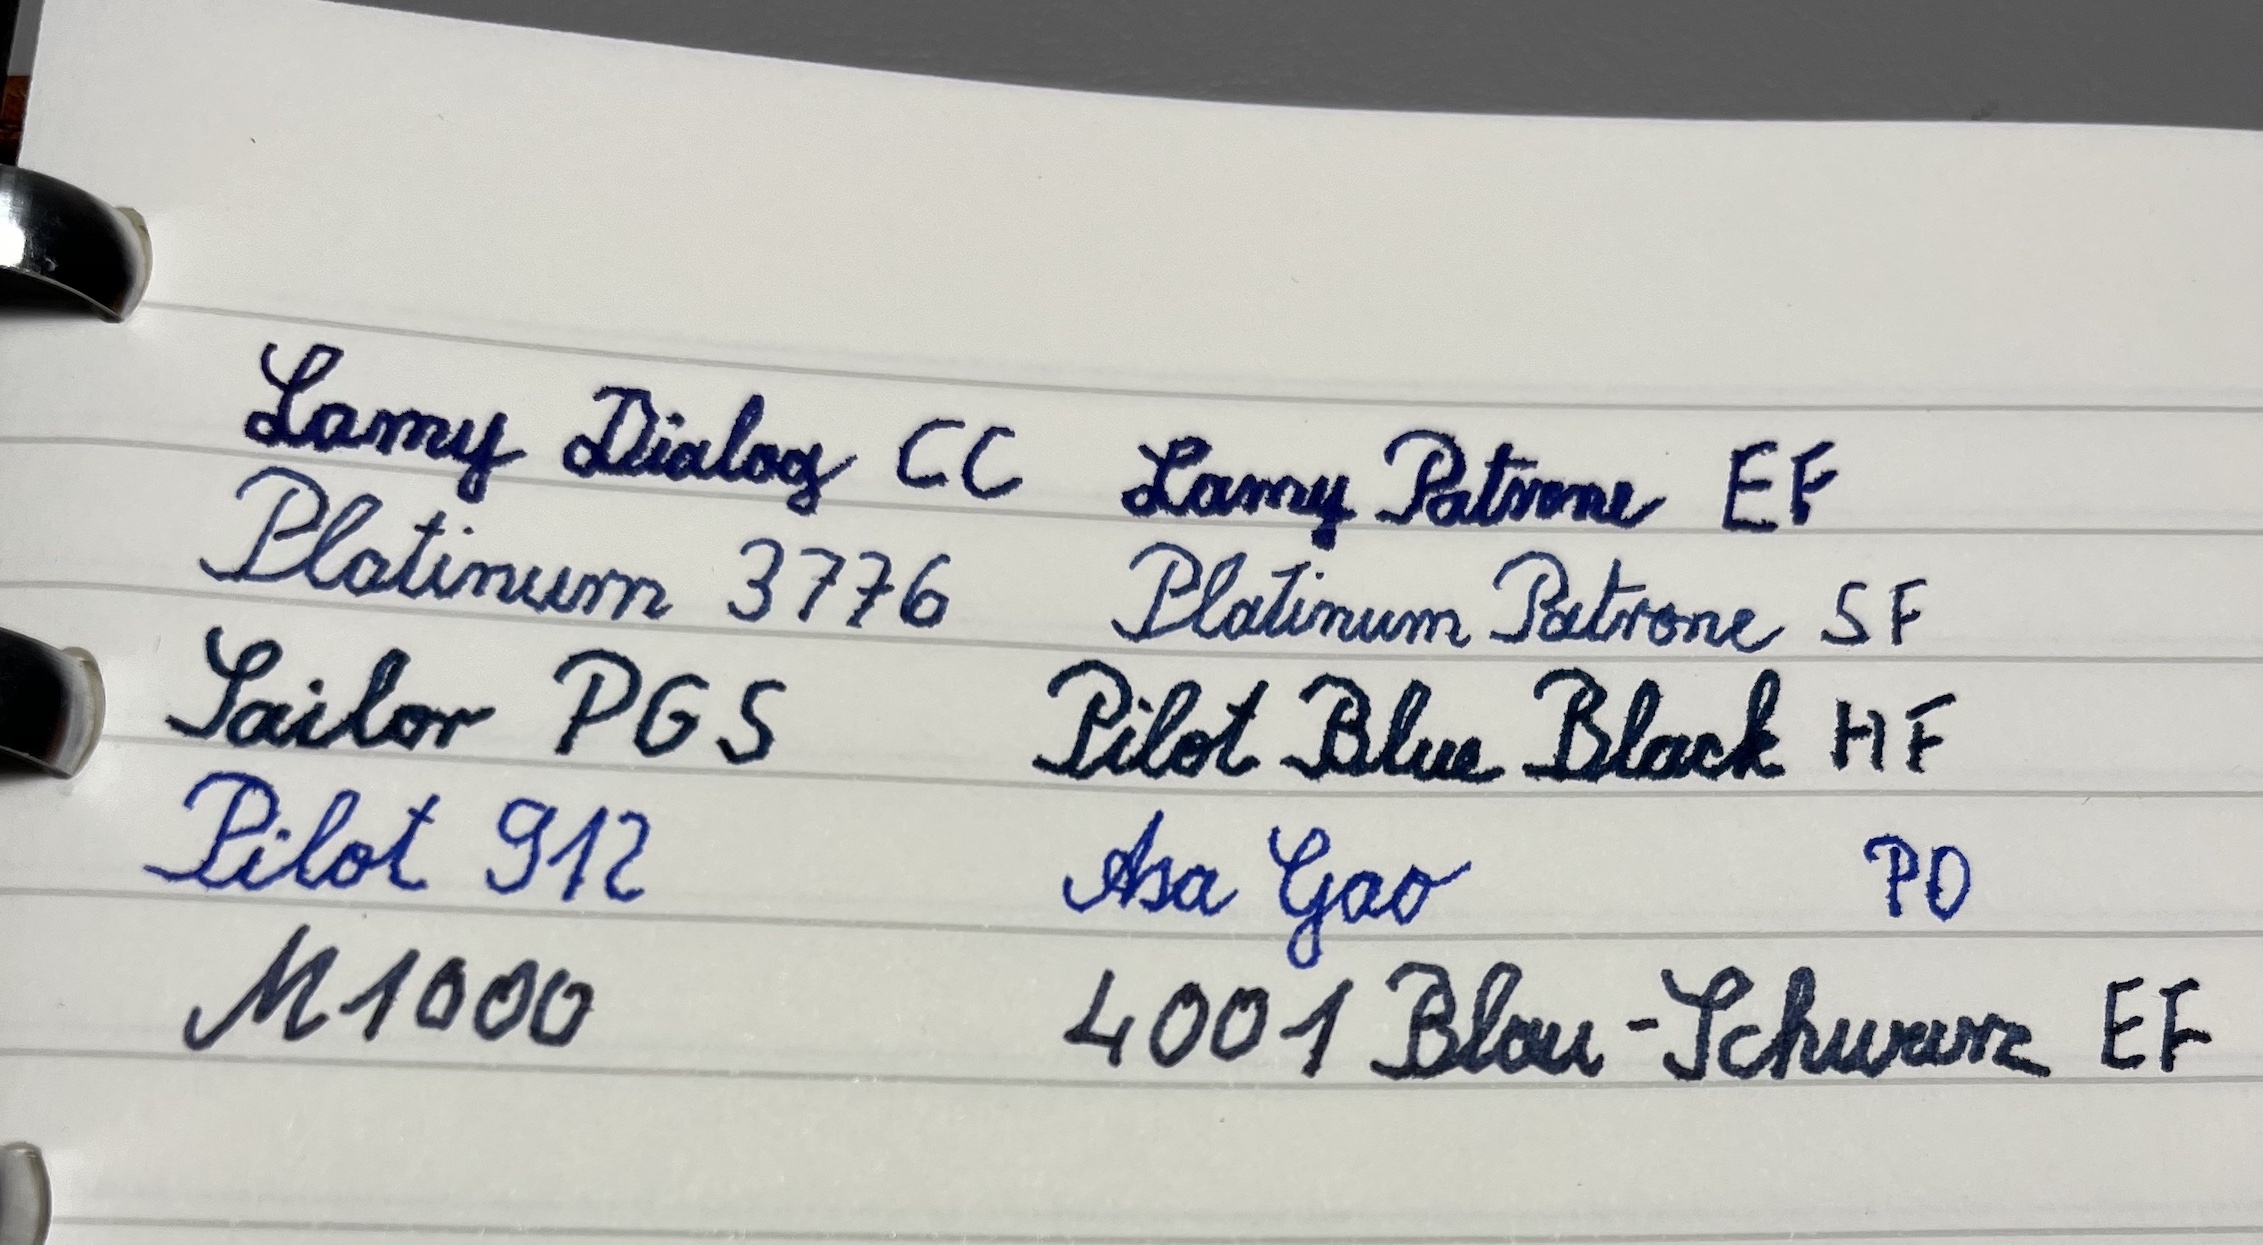 Lamy Dialog CC Lamy Patrone EF
Platinum 3776 Platinum Patrone SF
Sailor PGS Pilot Blue Black HF
Pilot 912 Asa Gao PO
M1000 4001 Blau-Schwarz EF